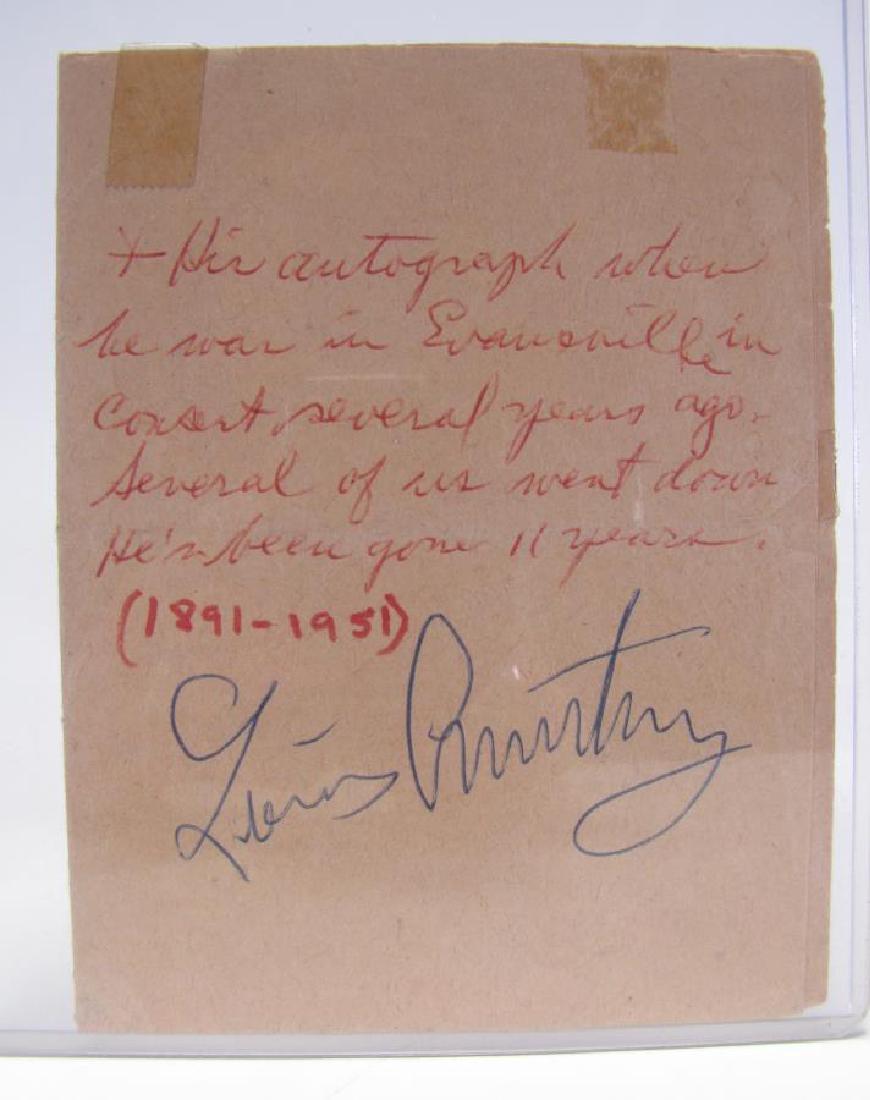 + His autograph when
he was in Evansville in
Concert, several years ago.
Several of us went down
He's been gone 11 years.
(1891-1951)